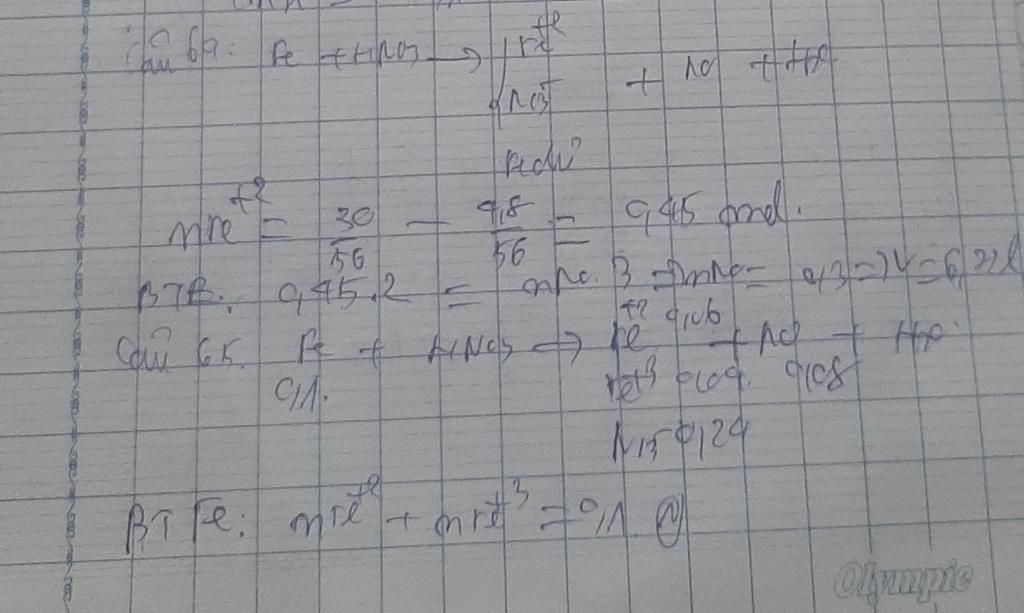 Câu 64: Fe + HNO3 → Fe+2 + NO + H2O
NO3-
Fe dư
nFe+2 = 30/56 - 4,8/56 = 0,45 mol.
BTE: 0,45.2 = nNO.3 => nNO = 0,3 => V = 6,72l
Câu 65. Fe + HNO3 → Fe+2 0,06 + NO + H2O
0,1. Fe+3 0,04. 0,08
0,24
BTFe: nFe+2 + nFe+3 = 0,1 (1)
Olympic